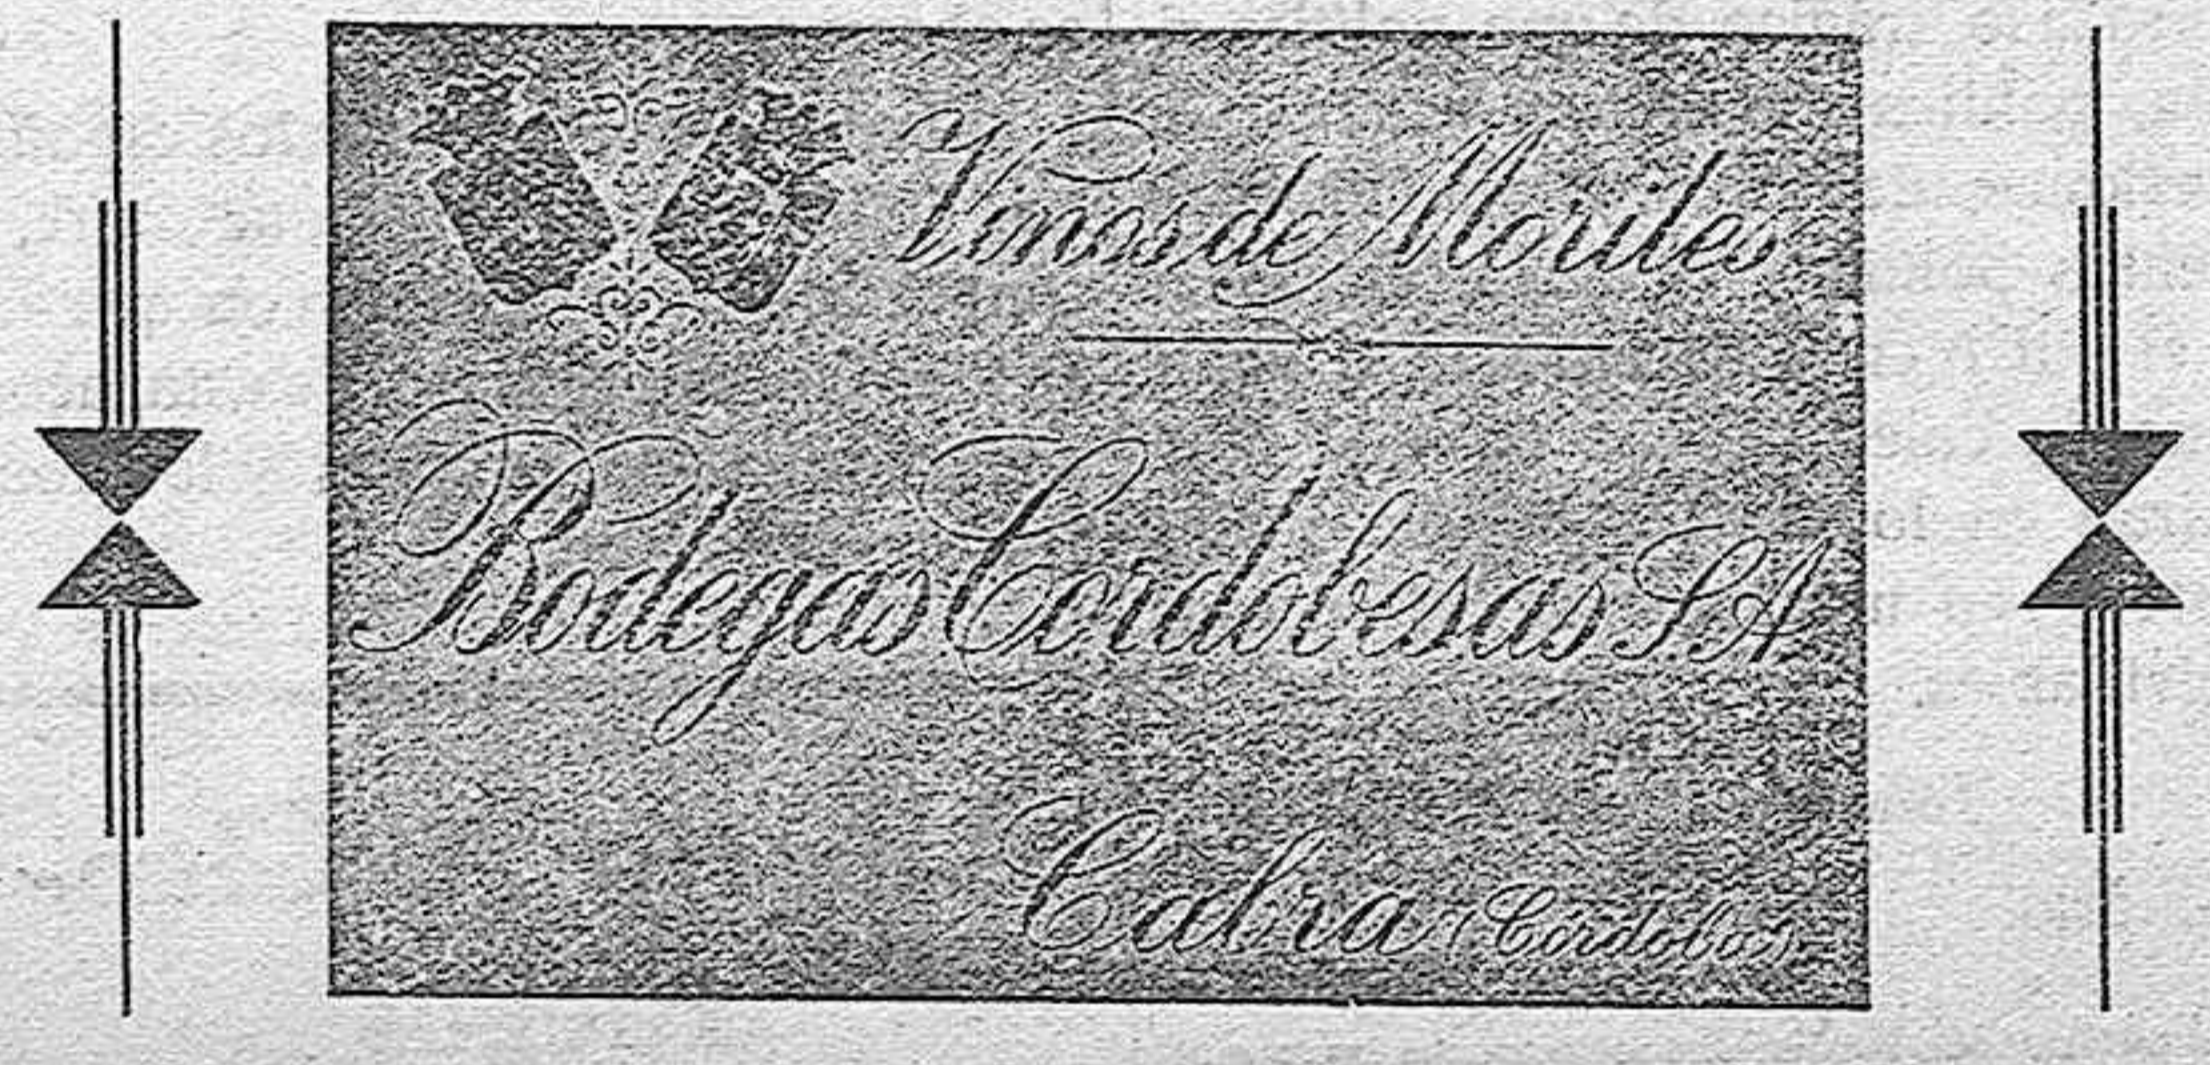 Vinos de Moriles
Bodegas Cordobesas S A
Cabra (Córdoba)